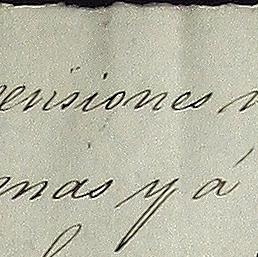 ensiones
mas y á